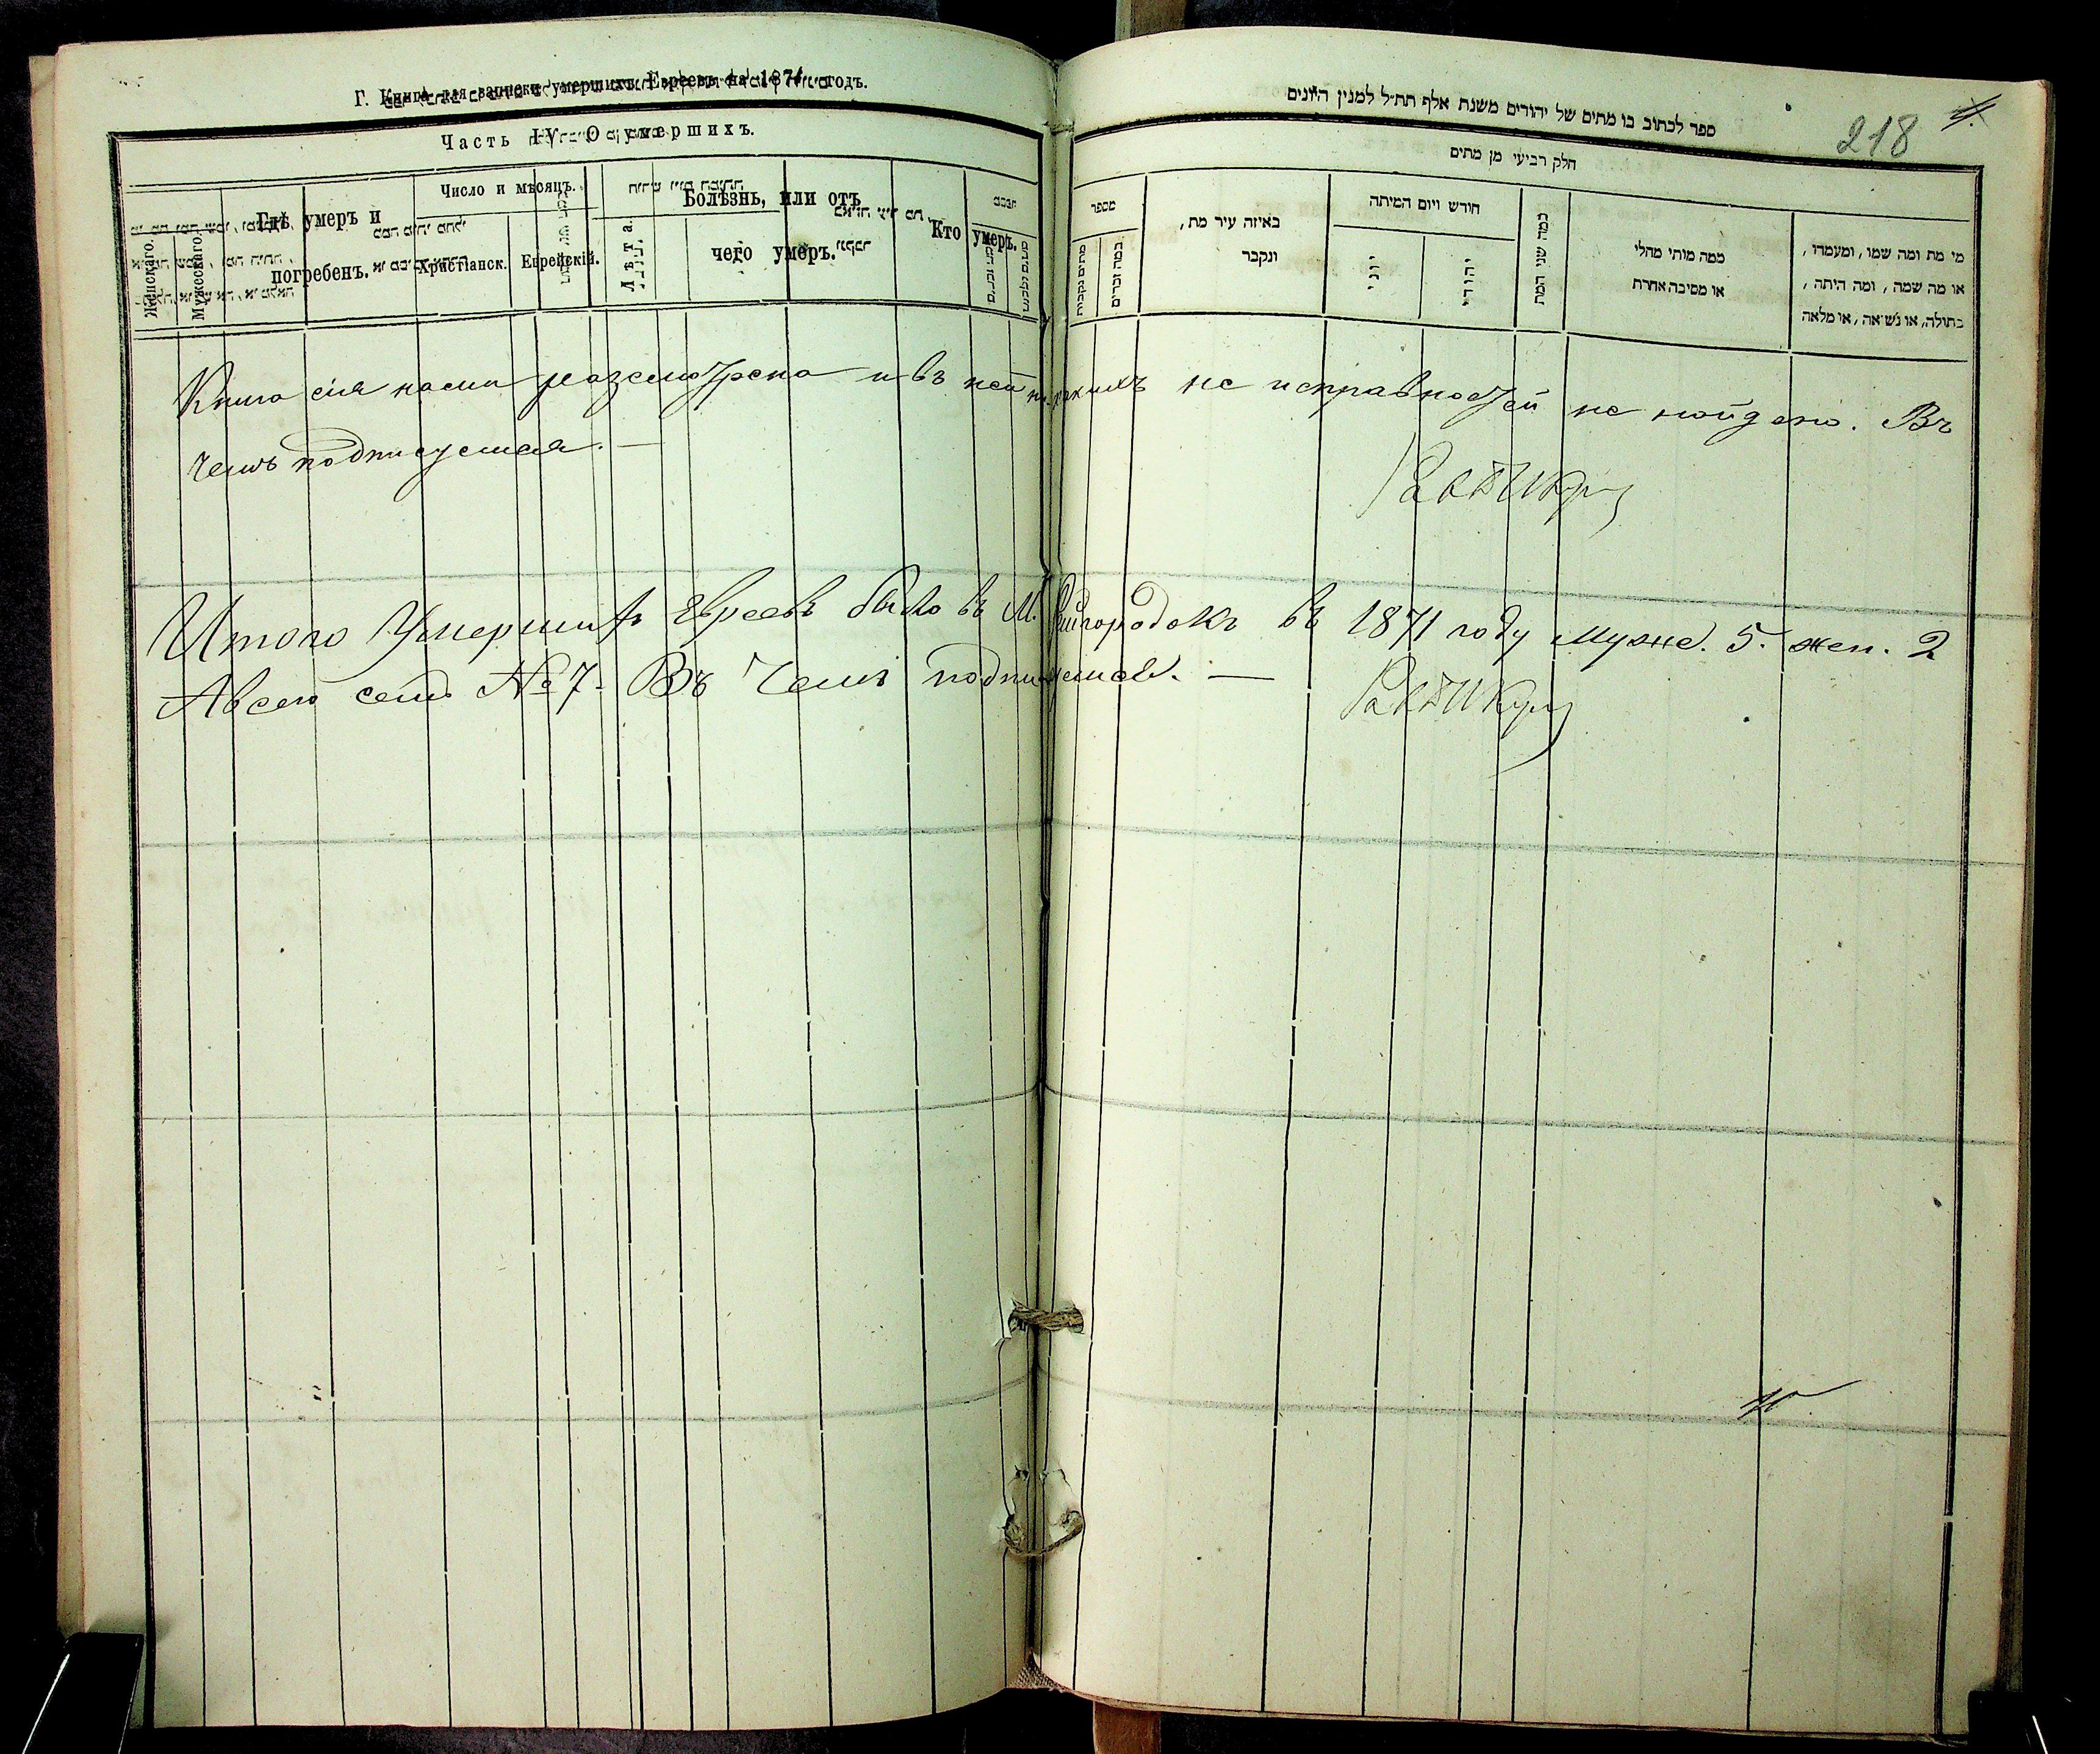 Г. Книга для записки умершихъ Евреевъ на 1871 годъ.
Часть IV. О умершихъ.
Женскаго.
Мужескаго.
Гдѣ умеръ и
погребенъ.
Число и мѣсяцъ.
Христіанск.
Еврейскій.
Лѣта.
Болѣзнь, или отъ
чего умеръ.
Кто умеръ.
ספר לכתוב בו מתים של יהודים משנת אלף תת״ל למנין היונים
218
חלק רביעי מן מתים
מספר
מתים נקבות
כמה זכרים
באיזה עיר מת,
ונקבר
חודש ויום המיתה
יוני
יהודי
כמה שני המת
ממה מותי מחלי
או מסיבה אחרת
מי מת ומה שמו, ומעמדו,
או מה שמה, ומה היתה,
בתולה, או נשואה, או מלאה
Книга сія нами разсмотрена и въ ней никакихъ не исправностей не найдено. Въ
чемъ подписуемся. —
Итого Умершихъ Евреевъ было въ М. Райгородокъ въ 1871 году Мужс. 5. жен. 2
А всего семь № 7. Въ Чемъ подписуемся. —